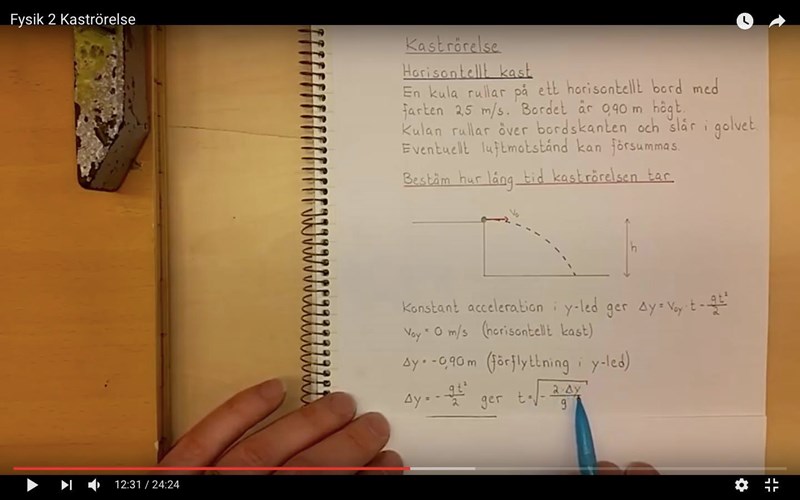 Fysik 2 Kaströrelse
Kaströrelse
Horisontellt kast
En kula rullar på ett horisontellt bord med
farten 2,5 m/s. Bordet är 0,90 m högt.
Kulan rullar över bordskanten och slår i golvet.
Eventuellt luftmotstånd kan försummas.
Bestäm hur lång tid kaströrelsen tar
v₀
h
Konstant acceleration i y-led ger Δy = v₀y · t - gt²/2
v₀y = 0 m/s (horisontellt kast)
Δy = -0,90 m (förflyttning i y-led)
Δy = - gt²/2 ger t = √(- 2·Δy/g)
12:31 / 24:24